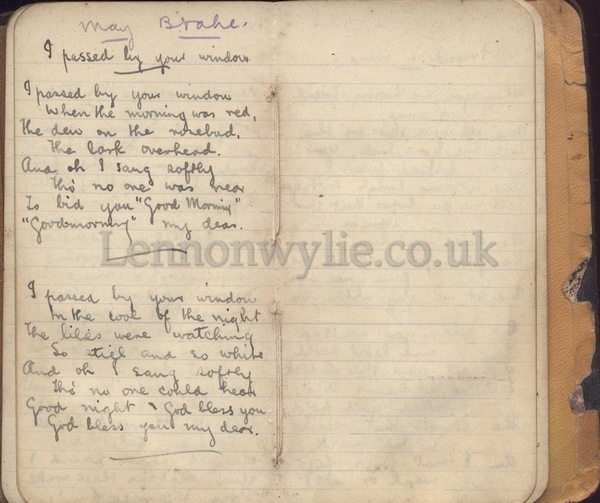 May Brahe.
I passed by your window
I passed by your window
When the morning was red,
The dew on the rosebud,
The lark overhead.
And oh I sang softly
Tho' no one was near
To bid you "Good Morning"
"Goodmorning" my dear.
I passed by your window
In the cool of the night
The lilies were watching
So still and so white
And oh I sang softly
Tho' no one could hear
Good night & God bless you
God bless you my dear.
Lennonwylie.co.uk